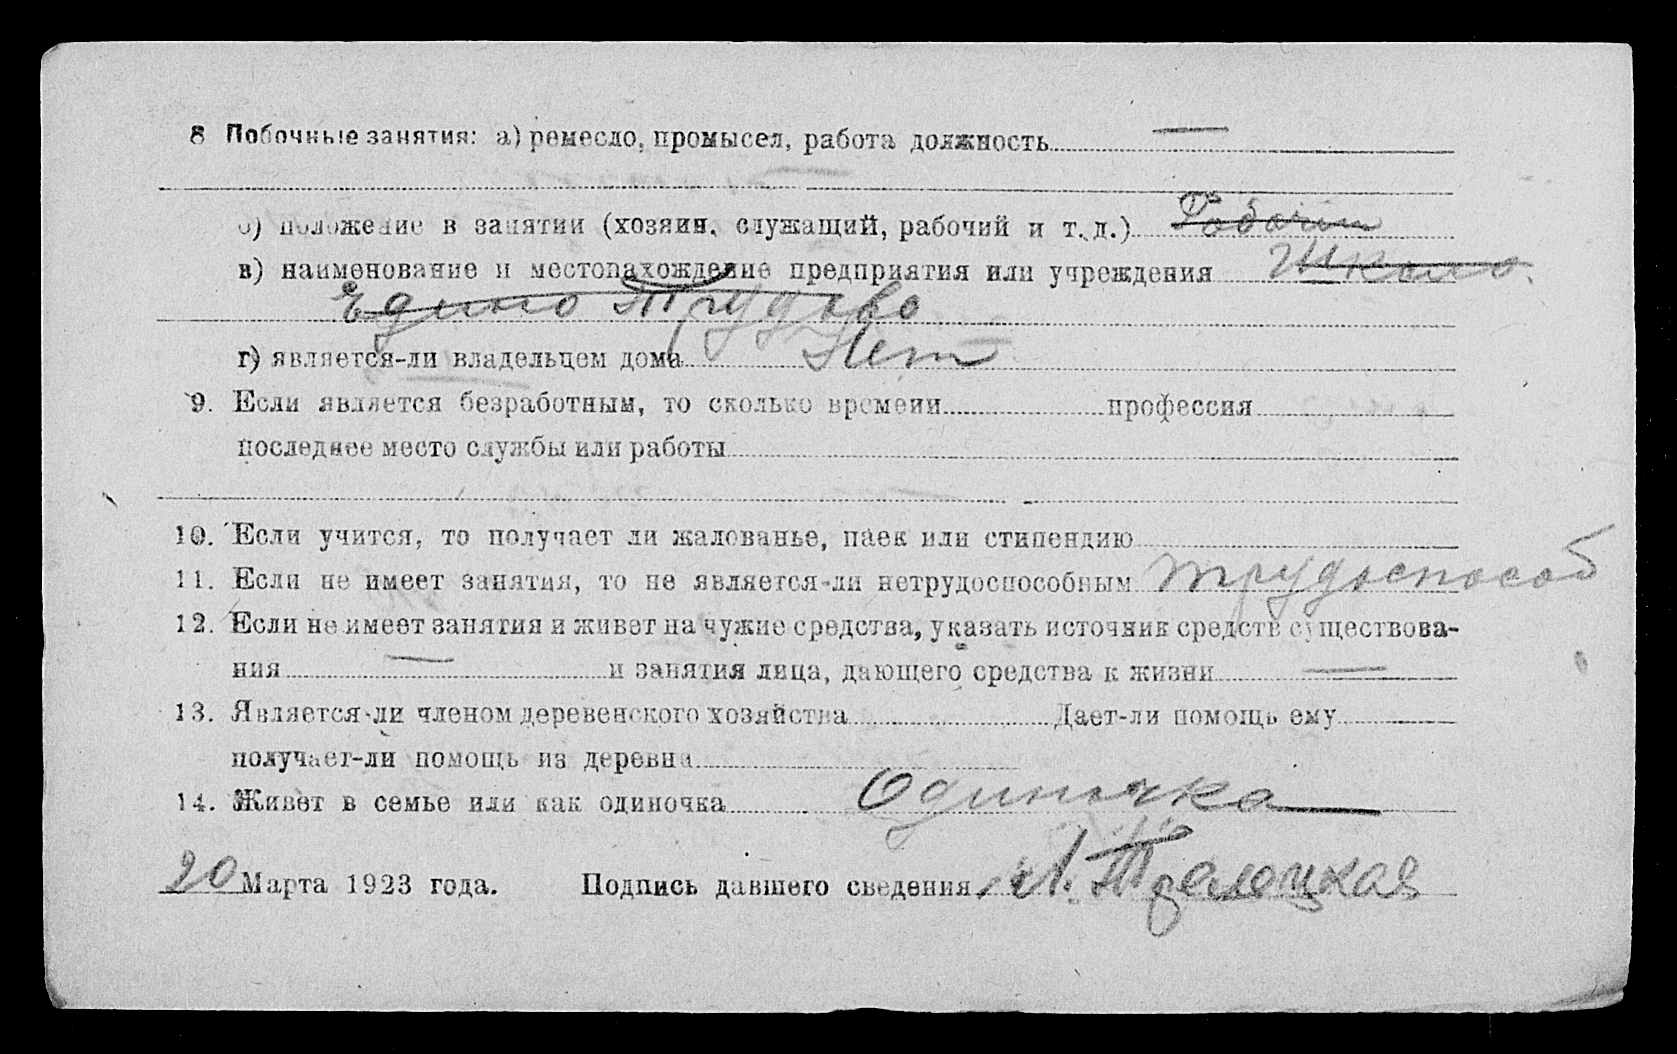 8 Побочные занятия: а) ремесло, промысел, работа должность —
б) положение в занятии (хозяин, служащий, рабочий и т. д.) Рабочий
в) наименование и местонахождение предприятия или учреждения Школа
Едино Трудово
г) является-ли владельцем дома Нет
9. Если является безработным, то сколько времени профессия
последнее место службы или работы
10. Если учится, то получает ли жалованье, паек или стипендию
11. Если не имеет занятия, то не является-ли нетрудоспособным трудоспособ
12. Если не имеет занятия и живет на чужие средства, указать источник средств существова-
ния — и занятия лица, дающего средства к жизни —
13. Является-ли членом деревенского хозяйства Дает-ли помощь ему
получает-ли помощь из деревни
14. Живет в семье или как одиночка Одиночка
20 Марта 1923 года. Подпись давшего сведения